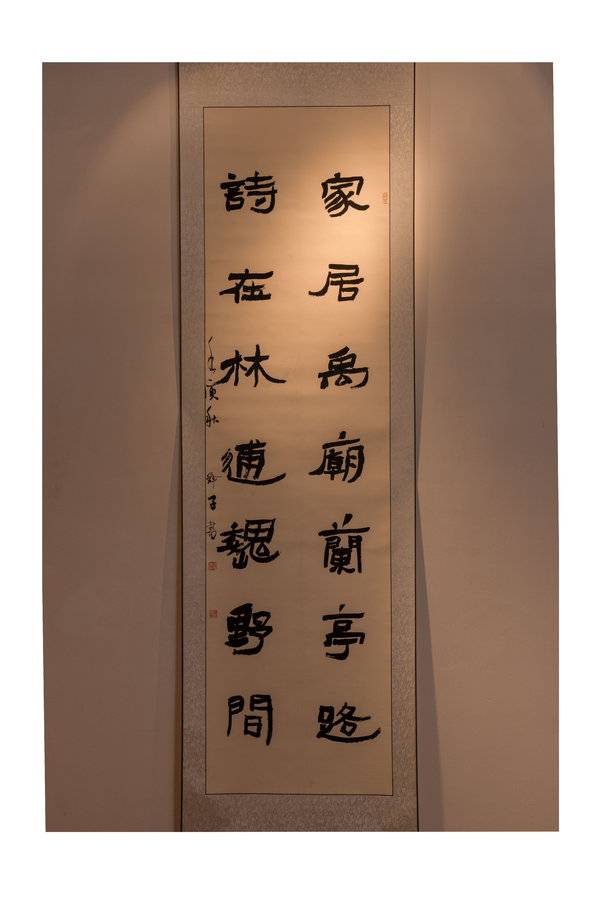 家居禹廟蘭亭路
詩在林逋魏野間
寅秋 子書